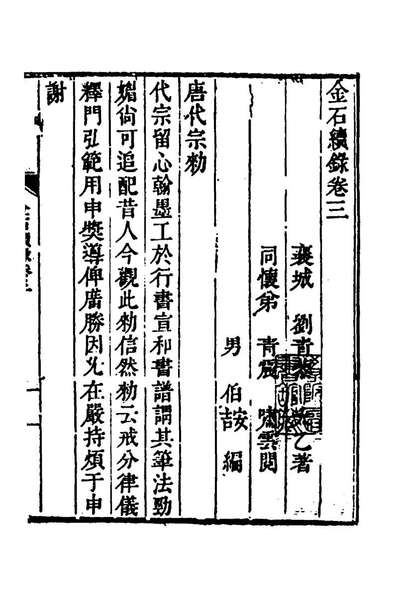 金石續錄卷三
襄城 劉青 乙著
同懷弟 青震 嘯雲閱
男 伯 編
唐代宗勑
代宗留心翰墨工於行書宣和書譜謂其筆法勁
媚尙可追配昔人今觀此勑信然勑云戒分律儀
釋門弘範用申奬導俾廣勝因允在嚴持煩于申
謝